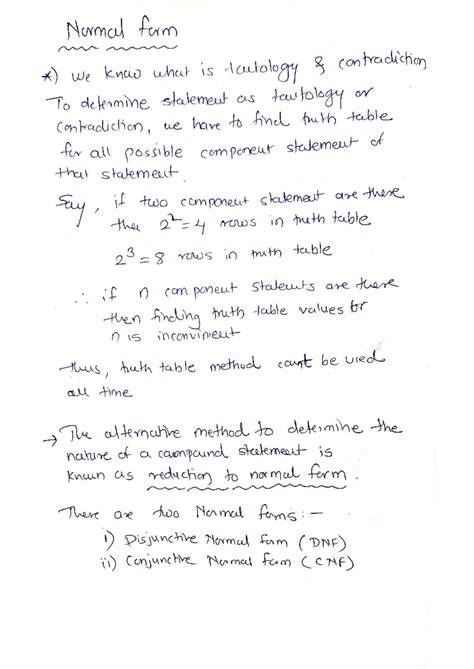 Normal form
*) we know what is tautology & contradiction
To determine statement as tautology or
contradiction, we have to find truth table
for all possible component statement of
that statement.
Say, if two component statement are there
then 2²=4 rows in truth table
2³=8 rows in truth table
∴ if n component statements are there
then finding truth table values for
n is inconvinient
thus, truth table method cant be used
all time
→ The alternative method to determine the
nature of a compound statement is
known as reduction to normal form.
There are two Normal forms:-
i) Disjunctive Normal form (DNF)
ii) Conjunctive Normal form (CNF)